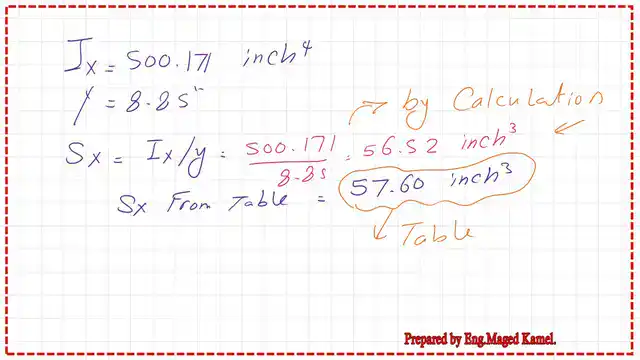 Ix = 500.171 inch⁴
y = 8.85"
by Calculation
Sx = Ix/y = 500.171/8.85 = 56.52 inch³
Sx From Table = 57.60 inch³
Table
Prepared by Eng.Maged Kamel.